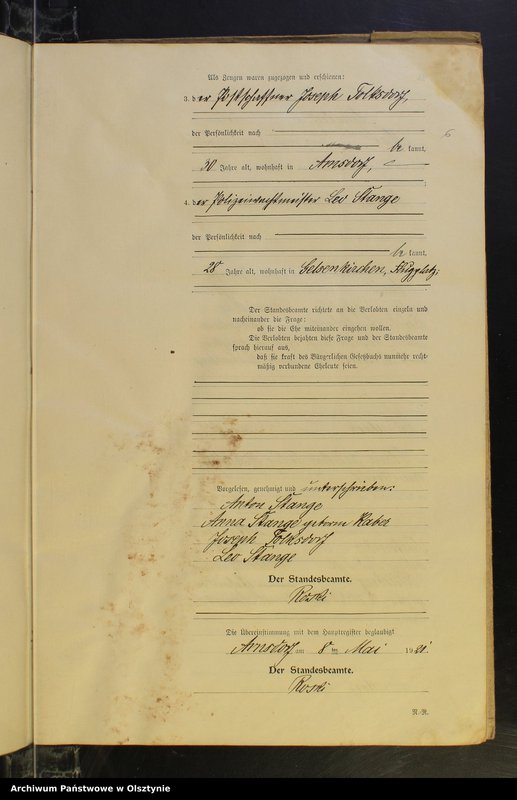 Als Zeugen waren zugezogen und erschienen:
3. der Postschaffner Joseph Tolksdorf,
der Persönlichkeit nach
be kannt,
30 Jahre alt, wohnhaft in Arnsdorf,
;
4. der Polizeiwachtmeister Leo Stange
der Persönlichkeit nach
be kannt,
28 Jahre alt, wohnhaft in Gelsenkirchen, Flugplatz;
Der Standesbeamte richtete an die Verlobten einzeln und
nacheinander die Frage:
ob sie die Ehe miteinander eingehen wollen.
Die Verlobten bejahten diese Frage und der Standesbeamte
sprach hierauf aus,
daß sie kraft des Bürgerlichen Gesetzbuchs nunmehr recht-
mäßig verbundene Eheleute seien.
Vorgelesen, genehmigt und unterschrieben:
Anton Stange
Anna Stange geborene
Joseph Tolksdorf
Leo Stange
Der Standesbeamte.
Roski
Die Übereinstimmung mit dem Hauptregister beglaubigt
Arnsdorf am 8 ten Mai 1921.
Der Standesbeamte.
Roski
N.-R.
Archiwum Państwowe w Olsztynie